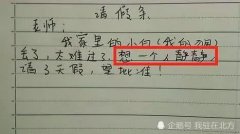 请假条
老师：
我家里的小白（我的狗）
丢了，太难过了，想一个人静静
请3天假，望批准！
企鹅号 我驻在北方